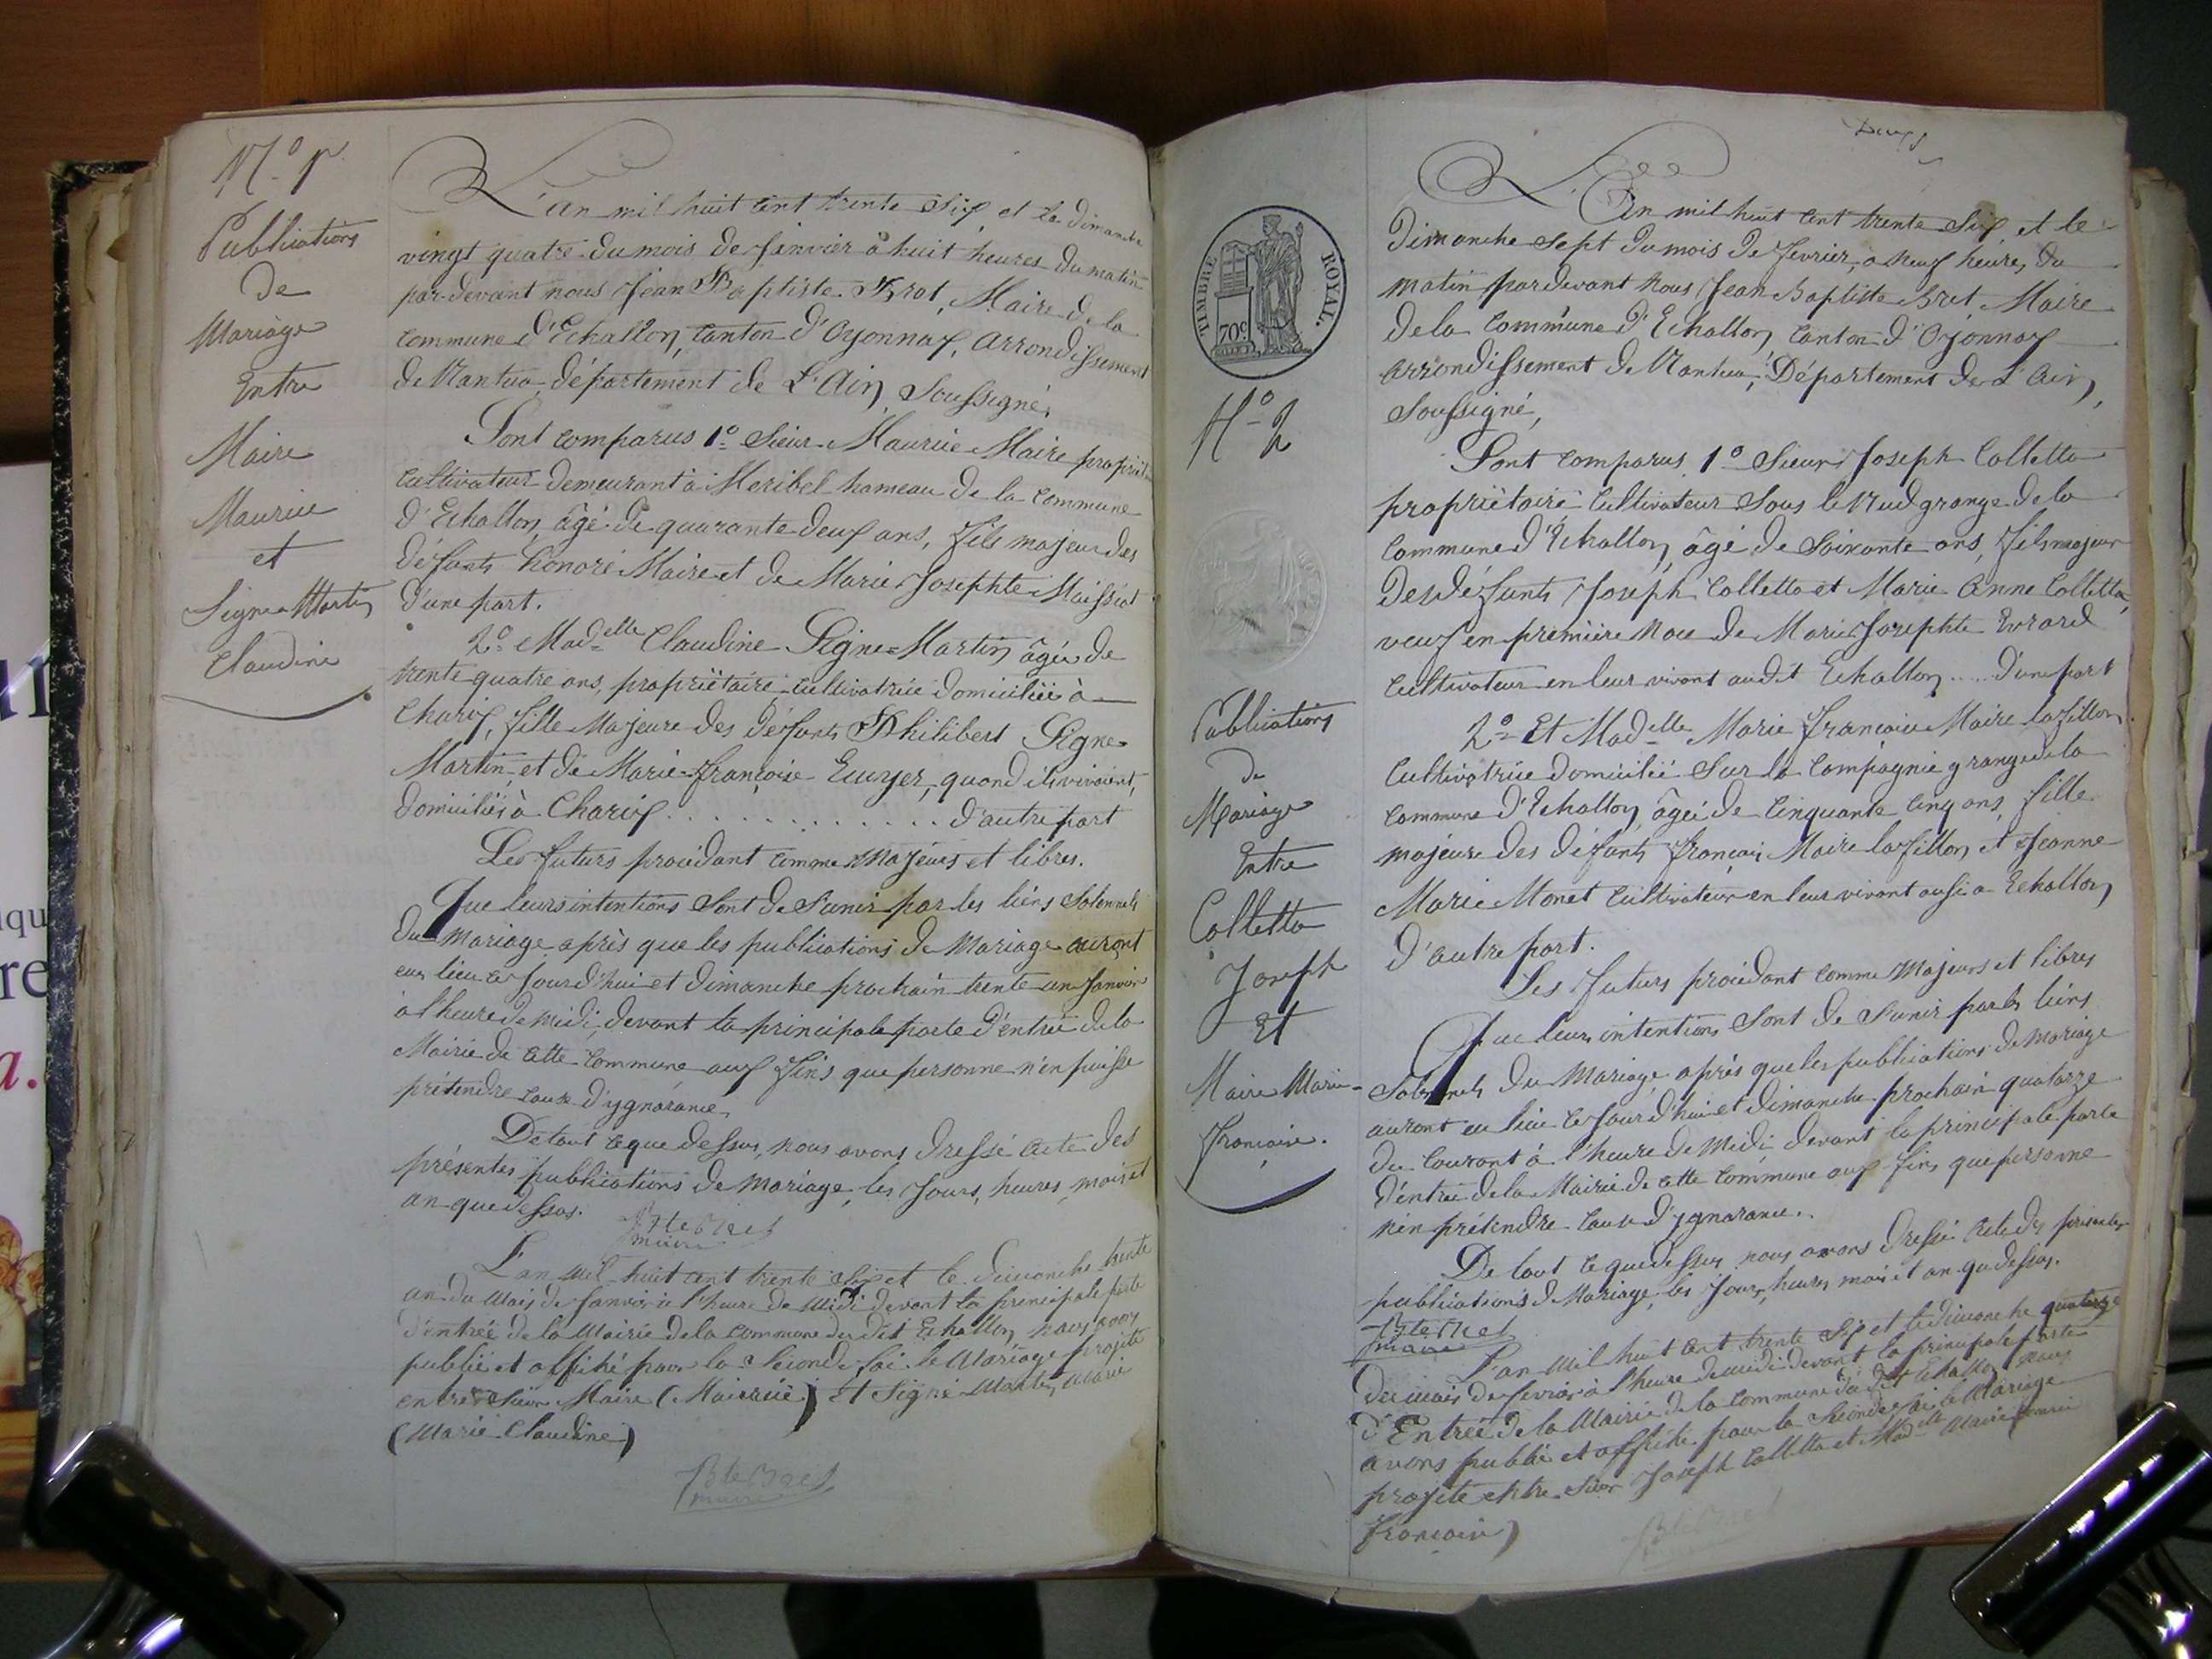 N.º 1
Publications
de
Mariage
Entre
Maire
Maurice
et
Signe Martin
Claudine
L'an mil huit cent trente six et le Dimanche
vingt quatre du mois de Janvier à huit heures du matin
par-devant nous Jean Baptiste Bret, Maire de la
commune d'Echallon, canton d'Oyonnax, arrondissement
de Nantua, département de L'Ain, soussigné,
Sont comparus 1º Sieur Maurice Maire propriét
cultivateur demeurant à Meribel hameau de la commune
d'Echallon, âgé de quarante deux ans, fils majeur des
défunts honoré Maire et de Marie Josephte Maissiat
d'une part.
2º Mad.elle Claudine Signe=Martin âgée de
trente quatre ans, propriétaire cultivatrice domiciliée à
Charix, fille Majeure des défunts Philibert Signe
Martin, et de Marie-françoise Ecuyer, quand ils vivaient,
domiciliés à Charix . . . . . . . . . . . . . d'autre part
Les futurs procédant comme Majeurs et libres.
Que leurs intentions sont de s'unir par les liens solennels
du Mariage après que les publications de Mariage auront
eus lieu ce jourd'hui et dimanche prochain trente un Janvier
à l'heure de midi, devant la principale porte d'entrée de la
Mairie de cette commune aux fins que personne n'en puisse
prétendre cause d'ygnorance,
De tout ce que dessus, nous avons dressé acte des
présentes publications de Mariage, les jours, heures, mois et
an que dessus.
Bte Bret
maire
L'an mil huit cent trente six et le dimanche trente
un du mois de Janvier à l'heure de midi devant la principale porte
d'entrée de la Mairie de la commune du dit Echallon, nous avons
publié et affiché pour la seconde foi le Mariage projité
entre Sieur Maire (Maurice) et Signe Martin, Marie
(Marie Claudine)
Bte Bret
maire
Deux
TIMBRE ROYAL.
70c.
N.º 2
Publications
de
Mariage
Entre
Colletta
Joseph
Et
Maire Marie-
françoise.
L'an mil huit cent trente six et le
Dimanche sept du mois de fevrier, a neuf heures du
matin pardevant nous Jean Baptiste Bret Maire
de la commune d'Echallon canton d'Oyonnax
arrondissement de Nantua, Département de L'Ain,
soussigné,
Sont comparus 1º Sieur Joseph Colletta
propriétaire cultivateur sous le Nud grange de la
commune d'Echallon, âgé de soixante ans, fils majeur
des défunts Joseph Colletta et Marie Anne Colletta,
veuf en première Noce de Marie Josephte Evrard
cultivateur en leur vivant audit Echallon .... d'une part
2º Et Mad.elle Marie françoise Maire lafillon,
cultivatrice domiciliée sur la compagnie grange de la
commune d'Echallon, âgée de cinquante cinq ans, fille
majeure des défunts françois Maire lafillon, et Jeanne
Marie Monet cultivateur en leur vivant aussi a Echallon,
d'autre part.
Les futurs procédant comme Majeurs et libres
Que leurs intentions sont de s'unir par les liens
solennels du Mariage après que les publications de mariage
auront eu lieu ce jourd'hui et dimanche prochain quatorze
du courant à l'heure de midi devant la principale porte
d'entrée de la Mairie de cette commune aux fins que personne
n'en prétendre cause d'ygnorance.
De tout ce que dessus nous avons dressé acte des présentes
publications de Mariage, les jours, heures mois et an que dessus.
Bte Bret
maire
L'an mil huit cent trente six et le dimanche quatorze
du mois de fevrier à l'heure de midi devant la principale porte
d'Entrée de la Mairie de la commune du dit Echallon nous
avons publié et affiché pour la seconde foi le Mariage
projité entre Sieur Joseph Colletta et Mad.elle Maire (marie
françoise)